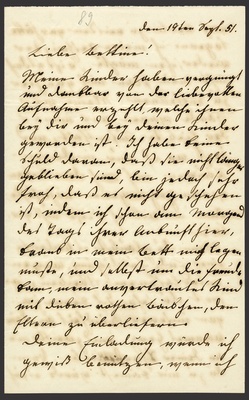 82
den 19ten Sept. 51.
Liebe Bettine!
Meine Kinder haben vergnügt
und dankbar von der liebevollen
Aufnahme erzählt, welche ihnen
bey dir und bey deinen Kindern
geworden ist. Ich habe keine
Schuld daran, daß sie nicht länger
geblieben sind, bin jedoch sehr
froh, daß es nicht geschehen
ist, indem ich schon am Morgen
des Tags ihrer Ankunft hier,
krank in mein Bett mich legen
mußte, und selbst um die Freude
kam, mein anvertrautes Kind
mit dicken rothen Backen, den
Eltern zu überliefern.
Deine Einladung würde ich
gewiß benützen, wenn ich